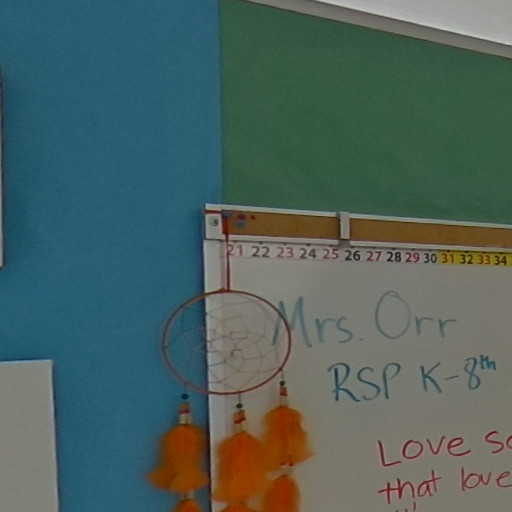 21 22 23 24 25 26 27 28 29 30 31 32 33 34
Mrs. Orr
RSP K-8th
Love
that love